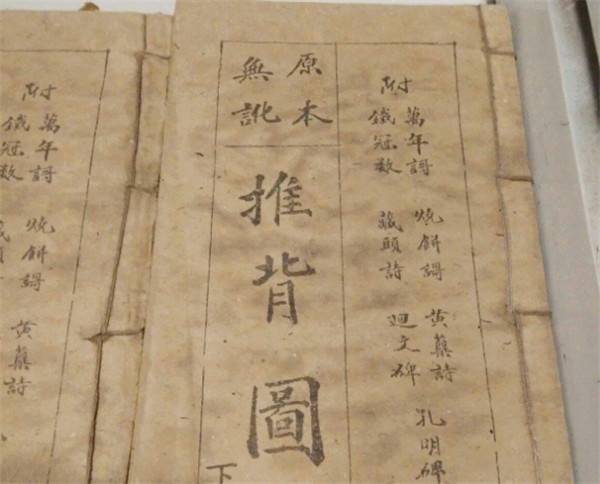 附
萬年謌 燒餅謌 黄蘗詩 孔明碑
鐵冠数 藏頭詩 廻文碑
原本
無訛
推背圖
下
附
萬年謌 燒餅謌 黄蘗詩
鐵冠数 藏頭